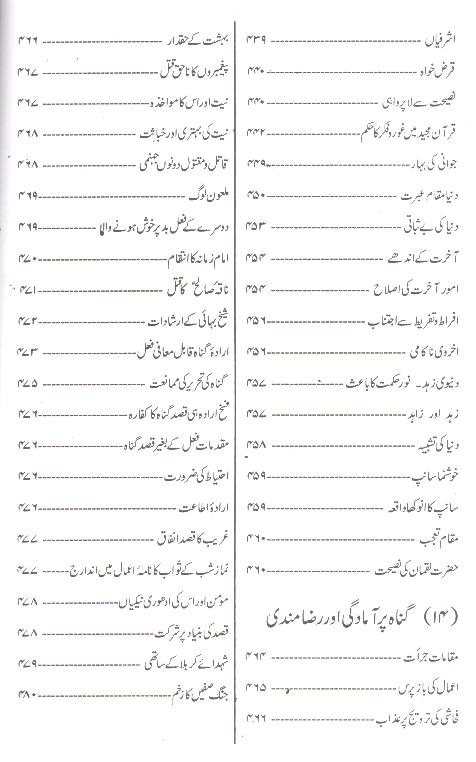 اشرفیاں ---------- ۴۳۹
قرض خواہ ---------- ۴۴۰
نصیحت سے لاپرواہی ---------- ۴۴۰
قرآن مجید میں غور و فکر کا حکم ---------- ۴۴۲
جوانی کی بہار ---------- ۴۴۹
دنیا مقام عبرت ---------- ۴۵۰
دنیا کی بے ثباتی ---------- ۴۵۳
آخرت کے اندھے ---------- ۴۵۴
امور آخرت کی اصلاح ---------- ۴۵۴
افراط و تفریط سے اجتناب ---------- ۴۵۶
اخروی ناکامی ---------- ۴۵۶
دنیوی زہد۔ نور حکمت کا باعث ---------- ۴۵۷
زہد اور زاہد ---------- ۴۵۷
دنیا کی تشبیہ ---------- ۴۵۸
خوشنما سانپ ---------- ۴۵۹
سانپ کا انوکھا واقعہ ---------- ۴۵۹
مقام تعجب ---------- ۴۶۰
حضرت لقمان کی نصیحت ---------- ۴۶۰
(۱۴) گناہ پر آمادگی اور رضامندی
مقامات جرأت ---------- ۴۶۴
اعمال کی باز پرس ---------- ۴۶۵
فحاشی کی ترویج پر عذاب ---------- ۴۶۶
بہشت کے حقدار ---------- ۴۶۶
پیغمبروں کا ناحق قتل ---------- ۴۶۷
نیت اور اس کا مواخذہ ---------- ۴۶۷
نیت کی بہتری اور خباثت ---------- ۴۶۸
قاتل و مقتول دونوں جہنمی ---------- ۴۶۸
ملعون لوگ ---------- ۴۶۹
دوسرے کے فعل بد پر خوش ہونے والا ---------- ۴۶۹
امام زمانہ کا انتقام ---------- ۴۷۰
ناقۂ صالح کا قتل ---------- ۴۷۱
شیخ بہائی کے ارشادات ---------- ۴۷۲
ارادۂ گناہ قابل معافی فعل ---------- ۴۷۳
گناہ کی تحریر کی ممانعت ---------- ۴۷۵
فسخ ارادہ ہی قصد گناہ کا کفارہ ---------- ۴۷۶
مقدمات فعل کے بغیر قصد گناہ ---------- ۴۷۶
احتیاط کی ضرورت ---------- ۴۷۶
ارادۂ اطاعت ---------- ۴۷۶
غریب کا قصد انفاق ---------- ۴۷۷
نماز شب کے ثواب کا نامۂ اعمال میں اندراج ---------- ۴۷۷
مؤمن اور اس کی ادھوری نیکیاں ---------- ۴۷۸
قصد کی بنیاد پر شرکت ---------- ۴۷۸
شہدائے کربلا کے ساتھی ---------- ۴۷۹
جنگ صفین کا زخم ---------- ۴۸۰